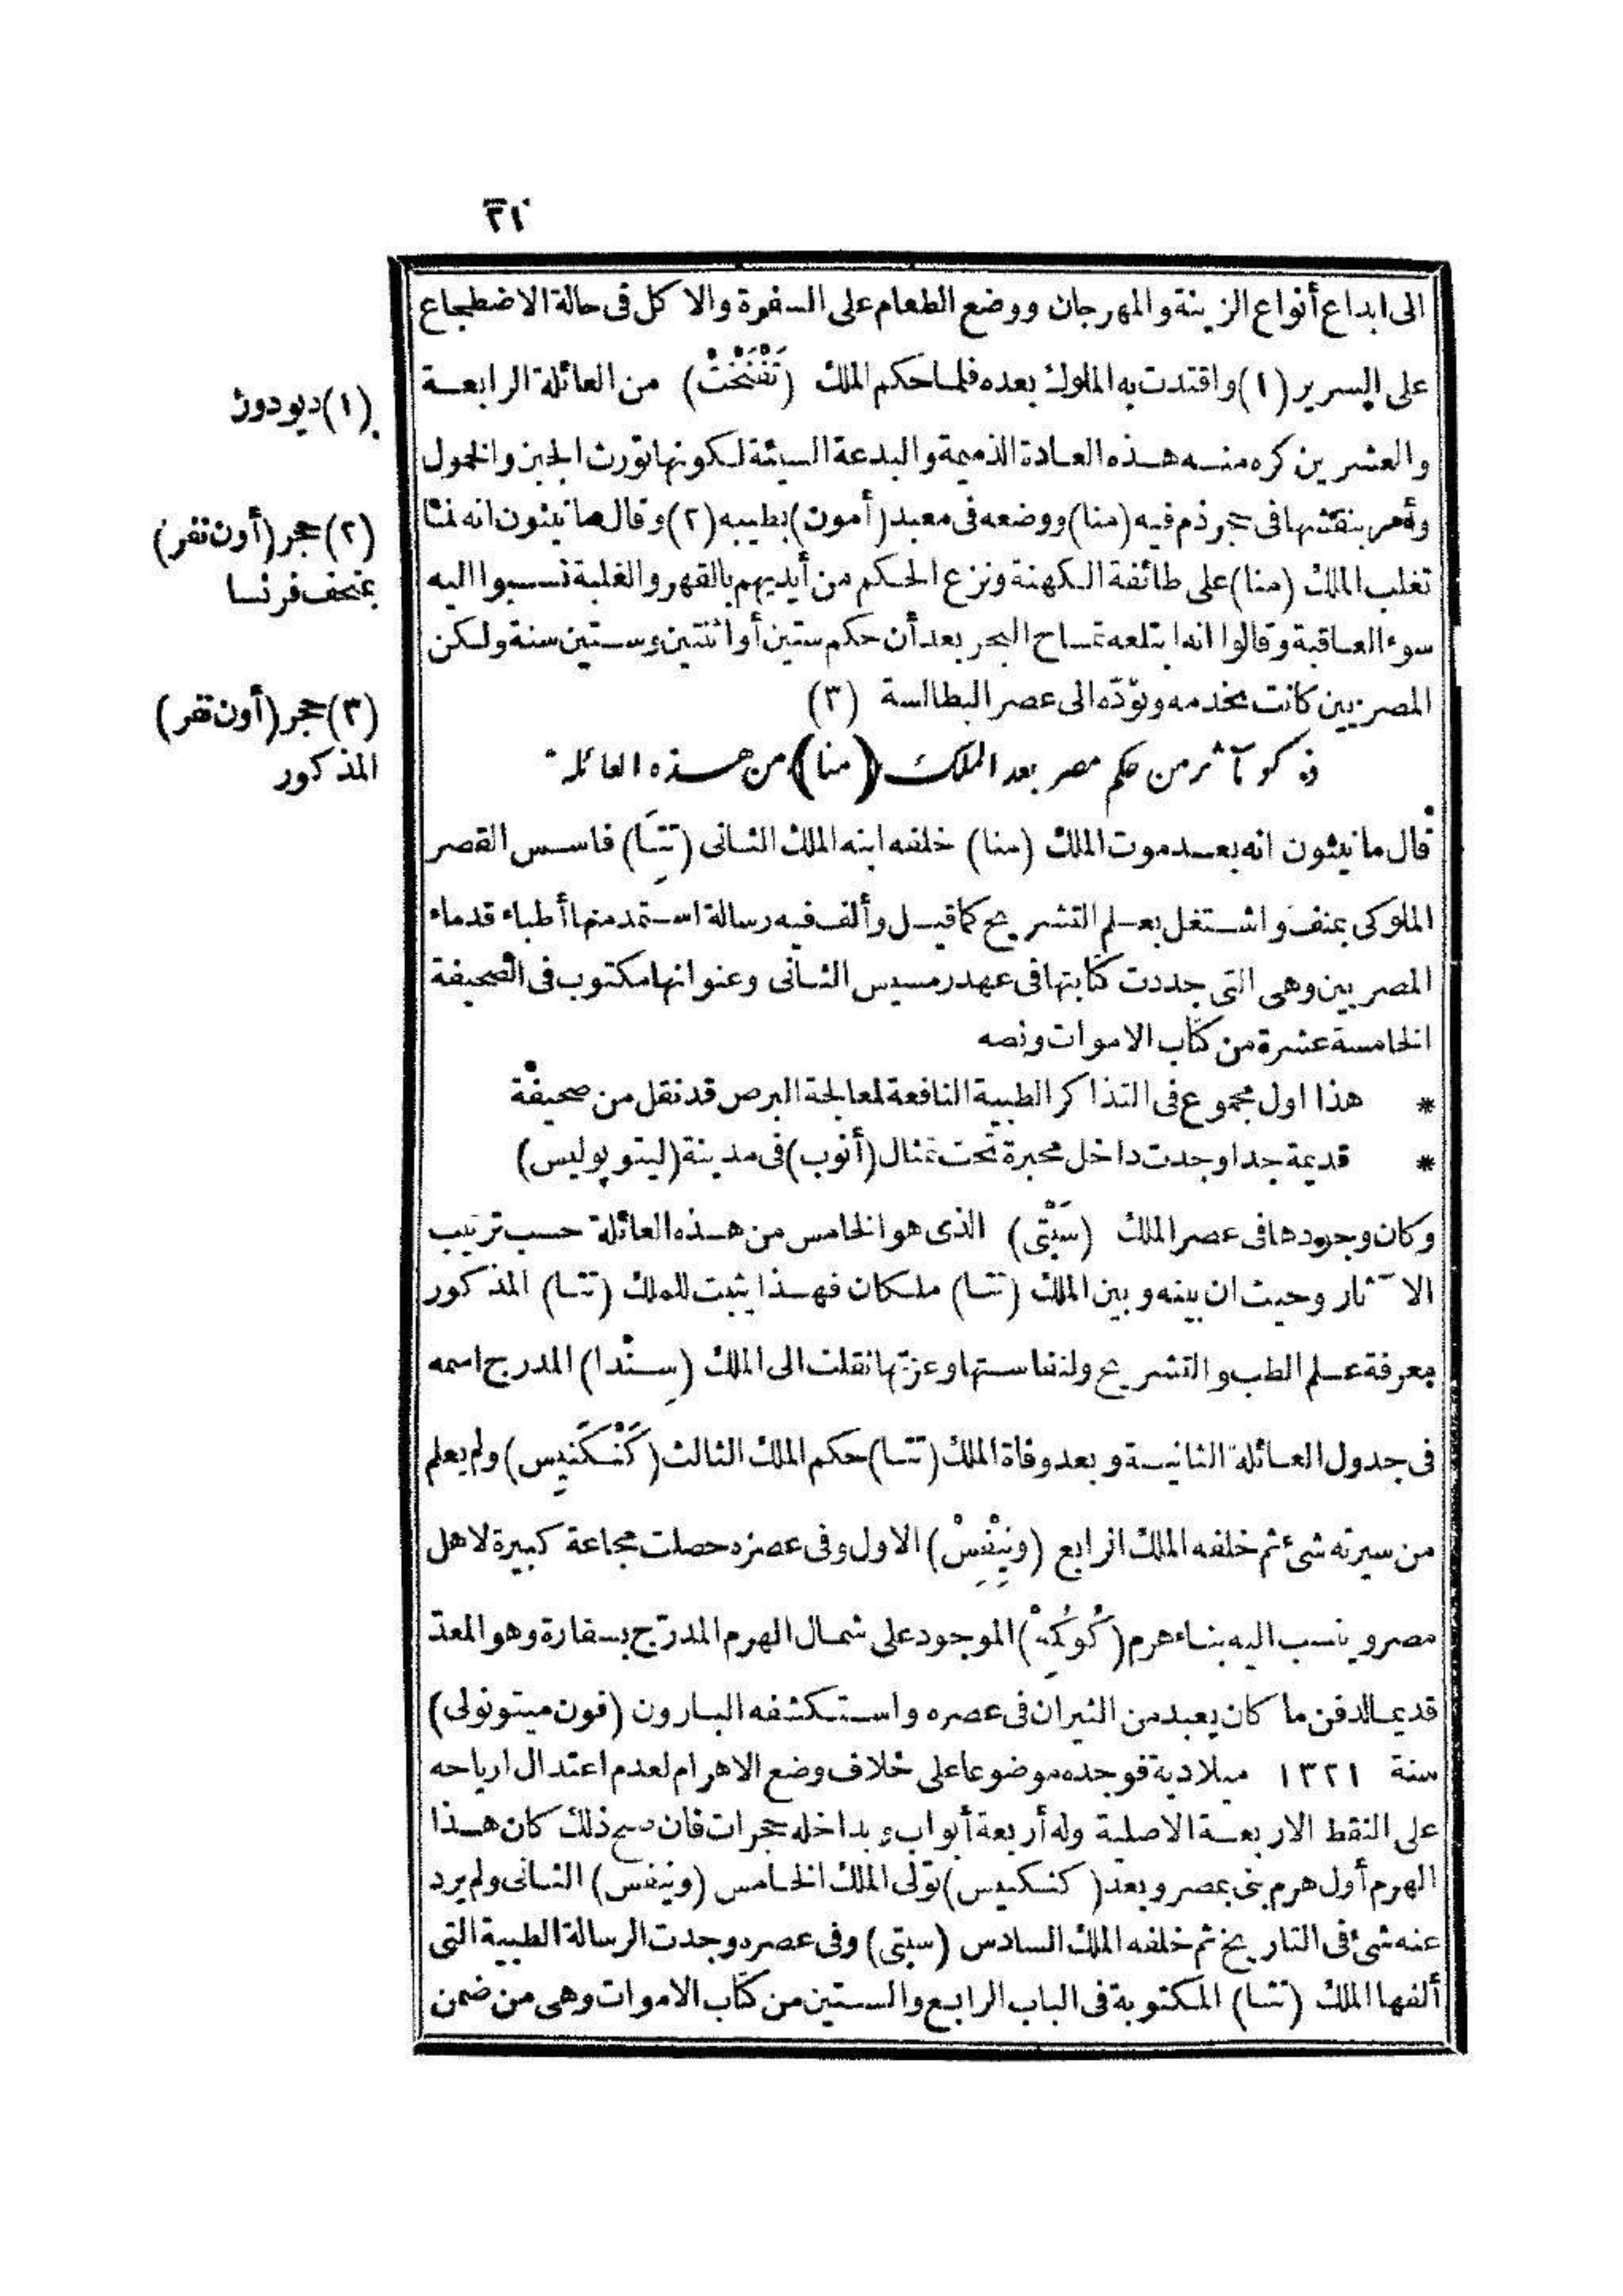 ٣١
الى ابداع أنواع الزينة والمهرجان ووضع الطعام على السفرة والا كل فى حالة الاضطجاع
على السرير (١) واقتدت به الملوك بعده فلما حكم الملك (تَفْنَخْتْ) من العائلة الرابعة
والعشرين كره منه هذه العادة الذميمة والبدعة السيئة لكونها تورث الجبن والخمول
وأمر بنقشها فى حجر ذم فيه (منا) ووضعه فى معبد (أمون) بطيبه (٢) وقال مانيثون انه لما
تغلب الملك (منا) على طائفة الكهنة ونزع الحكم من أيديهم بالقهر والغلبة نسبوا اليه
سوء العاقبة وقالوا انه ابتلعه تمساح البحر بعد أن حكم ستين أو اثنتين وستين سنة ولكن
المصريين كانت تخدمه وتودّه الى عصر البطالسة (٣)
ذكر مآثر من حكم مصر بعد الملك (منا) من هذه العائلة
قال مانيثون انه بعد موت الملك (منا) خلفه ابنه الملك الثانى (تِتَا) فاسس القصر
الملوكى بمنف واشتغل بعلم التشريح كما قيل وألف فيه رسالة استمد منها أطباء قدماء
المصريين وهى التى جددت كتابتها فى عهد رمسيس الثانى وعنوانها مكتوب فى الصحيفة
الخامسة عشرة من كتاب الاموات ونصه
* هذا اول مجموع فى التذاكر الطبية النافعة لمعالجة البرص قد نقل من صحيفة
* قديمة جدا وجدت داخل محبرة تحت تمثال (أنوب) فى مدينة (ليتوبوليس)
وكان وجودها فى عصر الملك (سَبْتى) الذى هو الخامس من هذه العائلة حسب ترتيب
الا ثار وحيث ان بينه وبين الملك (تتا) ملكان فهذا يثبت للملك (تتا) المذكور
معرفة علم الطب والتشريح ولنفاستها وعزتها نقلت الى الملك (سِنْدا) المدرج اسمه
فى جدول العائلة الثانية وبعد وفاة الملك (تتا) حكم الملك الثالث (كَنْكَنِيس) ولم يعلم
من سيرته شئ ثم خلفه الملك الرابع (وِنِيْفِسْ) الاول وفى عصره حصلت مجاعة كبيرة لاهل
مصر وينسب اليه بناء هرم (كُوكُمِهْ) الموجود على شمال الهرم المدرّج بسقارة وهو المعدّ
قديما لدفن ما كان يعبد من الثيران فى عصره واستكشفه البارون (فون ميتونولى)
سنة ١٣٢١ ميلادية فوجده موضوعا على خلاف وضع الاهرام لعدم اعتدال ارياحه
على النقط الاربعة الاصلية وله أربعة أبواب وبداخله حجرات فان صح ذلك كان هذا
الهرم أول هرم بنى بمصر وبعد (كنكنيس) تولى الملك الخامس (وينفس) الثانى ولم يرد
عنه شئ فى التاريخ ثم خلفه الملك السادس (سبتى) وفى عصره وجدت الرسالة الطبية التى
ألفها الملك (تتا) المكتوبة فى الباب الرابع والستين من كتاب الاموات وهى من ضمن
(١) ديودور
(٢) حجر (أون نفر)
بمتحف فرنسا
(٣) حجر (أون نفر)
المذكور